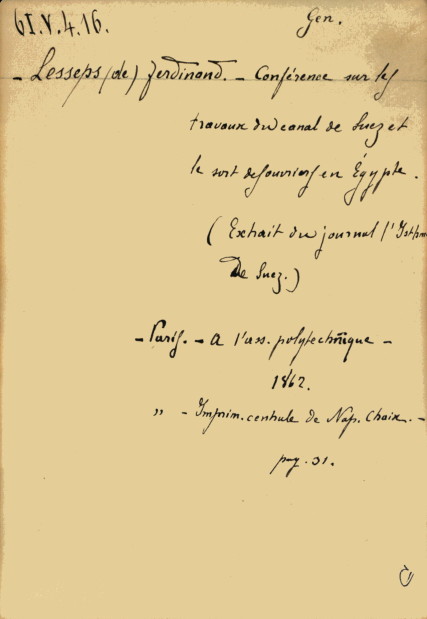 61.V.4.16.
Gen.
- Lesseps (de) Ferdinand. - Conférence sur les
travaux du canal de Suez et
le sort des ouvriers en Égypte.
(Extrait du journal l'Isthme
De Suez.)
- Paris. - A l'ass. polytechnique -
1862.
" - Imprim. centrale de Nap. Chaix. -
pag. 31.